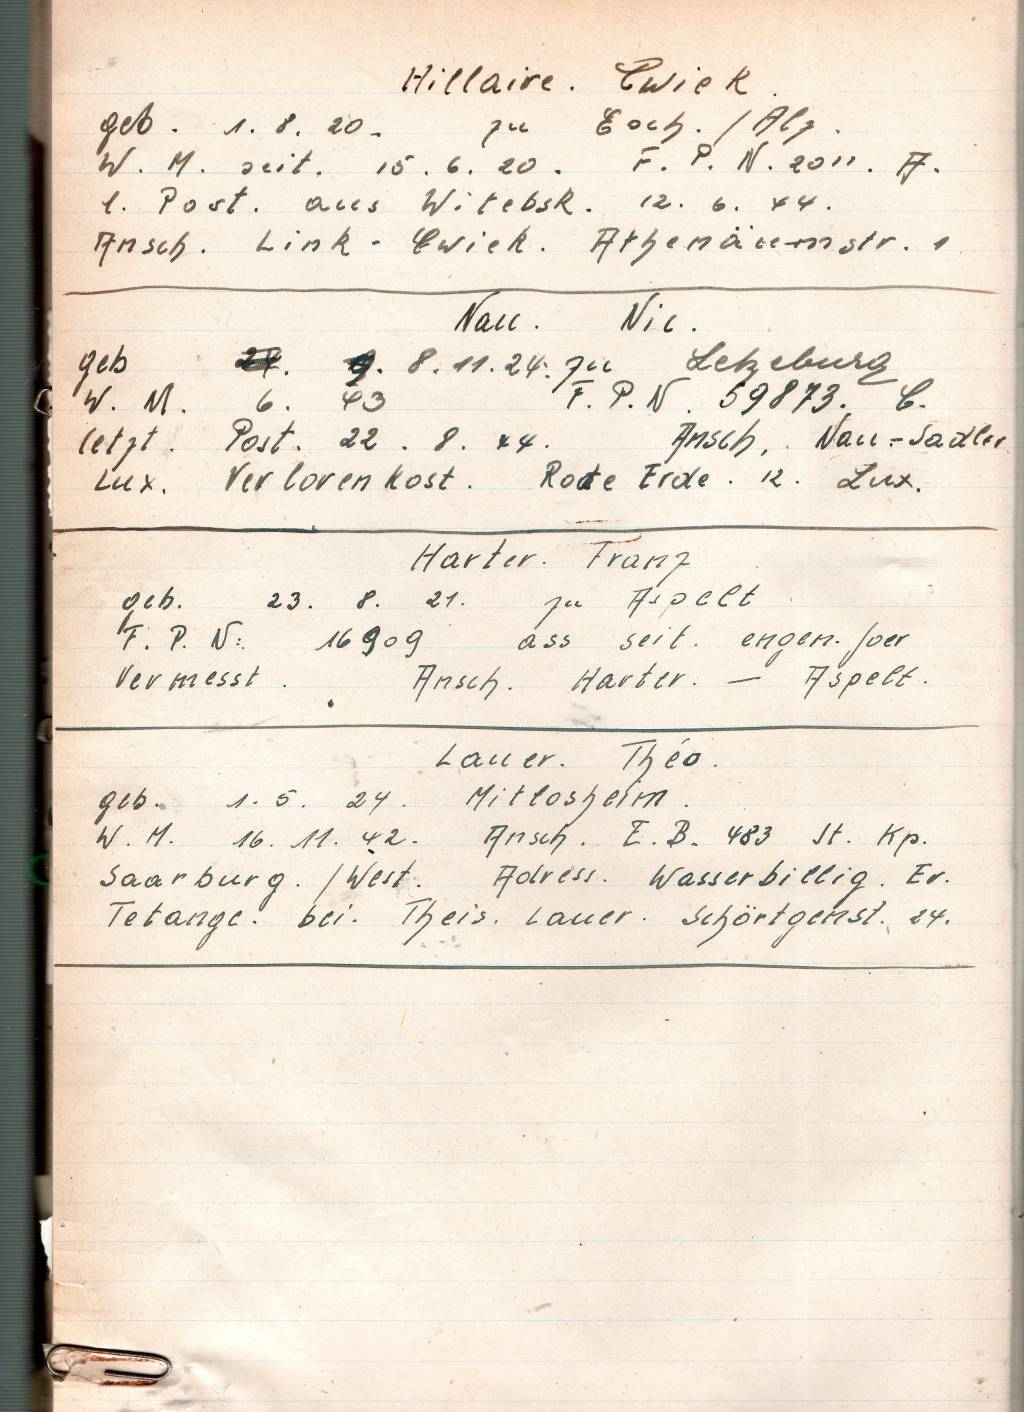 Hillaire. Cwick.
geb. 1. 8. 20. zu Esch. /Alz.
W. M. seit. 15. 6. 20. F. P. N. 2011. A.
l. Post. aus Witebsk. 12. 6. 44.
Ansch. Link - Cwick. Athenäumstr. 1
Nau. Nic.
geb 8. 11. 24. zu Letzeburg
W. M. 6. 43 F. P. N. 59873. C.
letzt. Post. 22. 8. 44. Ansch. Nau - Sadler
Lux. Verlorenkost. Rote Erde. 12. Lux.
Harter. Franz
geb. 23. 8. 21. zu Aspelt
F. P. N: 16909 ass seit. engem. Joer
Vermesst. Ansch. Harter. — Aspelt.
Lauer. Théo.
geb. 1. 5. 24. Mitlosheim.
W. M. 16. 11. 42. Ansch. E. B. 483 St. Kp.
Saarburg. /West. Adress. Wasserbillig. Er.
Tetange. bei. Theis. Lauer. Schörtgenst. 24.